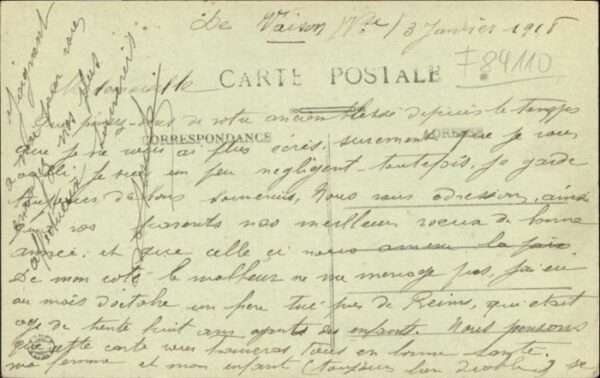 De Vaison Vse / 3 Janvier 1918
F 84110
Mademoiselle
CARTE POSTALE
Que pensez-vous de votre ancien blessé depuis le temps
CORRESPONDANCE
que je ne vous ai plus écris, surement que je vous
oublie, je suis un peu négligent toutefois, je garde
toujours de bons souvenirs, Nous vous adressons, ainsi
qu'à vos parents nos meilleurs voeux de bonne
année, et que celle ci nous amène la paix
De mon coté le malheur ne me menage pas, j'ai eu
au mois d'octobre un frère tué près de Reims, qui était
agé de trente huit ans ayant des enfants. Nous pensons
que cette carte vous trouvera tous en bonne santé.
ma femme et mon enfant (toujours bon diable) se
joignent
a moi pour vous
nos plus
affectueux souvenirs